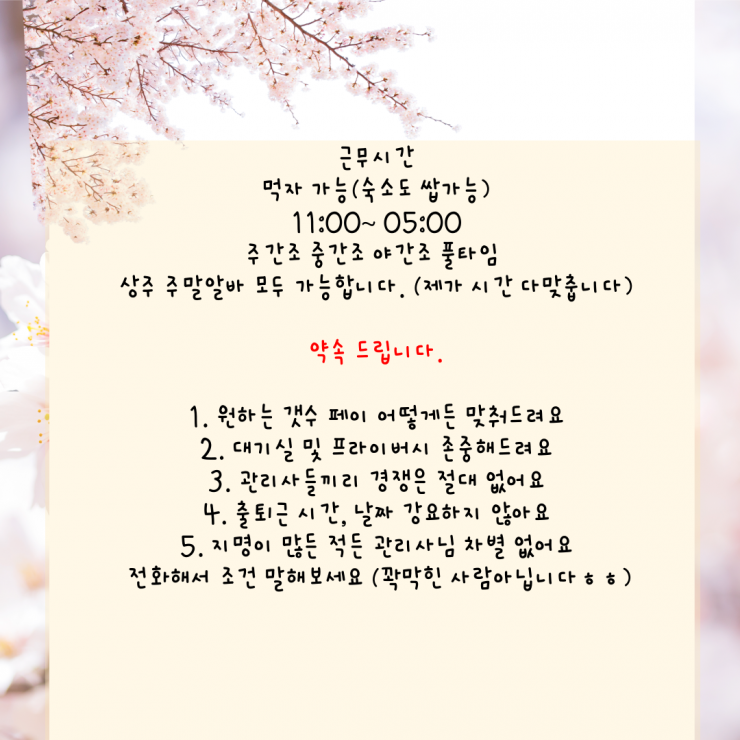 근무시간
먹자 가능(숙소도 쌉가능)
11:00~ 05:00
주간조 중간조 야간조 풀타임
상주 주말알바 모두 가능합니다. (제가 시간 다맞춥니다)
약속 드립니다.
1. 원하는 갯수 페이 어떻게든 맞춰드려요
2. 대기실 및 프라이버시 존중해드려요
3. 관리사들끼리 경쟁은 절대 없어요
4. 출퇴근 시간, 날짜 강요하지 않아요
5. 지명이 많든 적든 관리사님 차별 없어요
전화해서 조건 말해보세요 (꽉막힌 사람아닙니다ㅎㅎ)